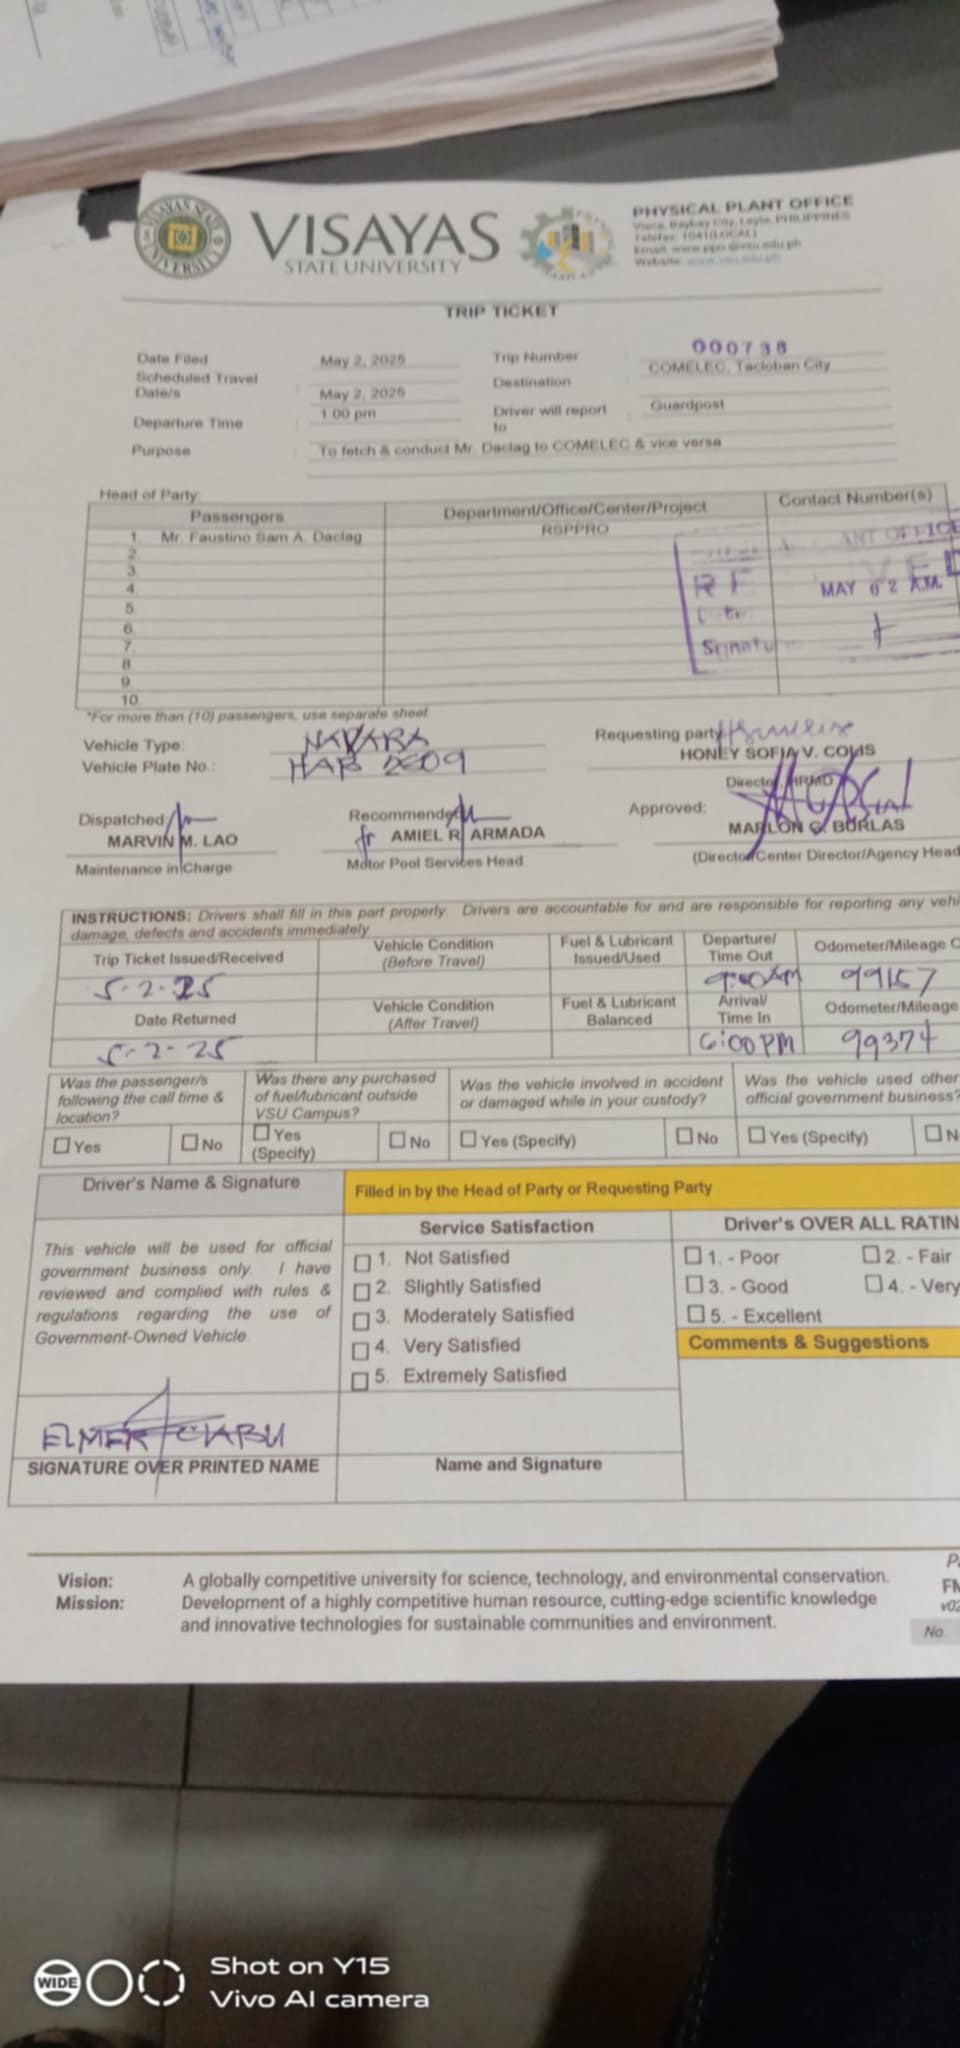 VISAYAS
STATE UNIVERSITY
PHYSICAL PLANT OFFICE
Visca, Baybay City, Leyte, PHILIPPINES
Email: www.ppo@vsu.edu.ph
Website: www.vsu.edu.ph
TRIP TICKET
Date Filed : May 2, 2025
Trip Number : 000738
Scheduled Travel Date/s : May 2, 2025
Destination : COMELEC, Tacloban City
Departure Time : 1:00 pm
Driver will report to : Guardpost
Purpose : To fetch & conduct Mr. Daclag to COMELEC & vice versa
Head of Party:
Passengers Department/Office/Center/Project Contact Number(s)
1. Mr. Faustino Sam A. Daclag RSPPRO
2.
3.
4.
5.
6.
7.
8.
9.
10.
ANT OFFICE
MAY 02 A.M.
*For more than (10) passengers, use separate sheet.
Vehicle Type: NAVARA
Vehicle Plate No.: HAB 2609
Requesting party
HONEY SOFIA V. COLIS
Director, HRMD
Dispatched:
MARVIN M. LAO
Maintenance in Charge
Recommended
fr AMIEL R. ARMADA
Motor Pool Services Head
Approved:
MARLON G. BURLAS
(Director/Center Director/Agency Head
INSTRUCTIONS: Drivers shall fill in this part properly. Drivers are accountable for and are responsible for reporting any vehi
damage, defects and accidents immediately
Trip Ticket Issued/Received
5-2-25
Vehicle Condition
(Before Travel)
Fuel & Lubricant
Issued/Used
Departure/
Time Out
9:00AM
Odometer/Mileage O
99157
Date Returned
5-2-25
Vehicle Condition
(After Travel)
Fuel & Lubricant
Balanced
Arrival/
Time In
6:00PM
Odometer/Mileage
99374
Was the passenger/s
following the call time &
location?
☐ Yes ☐ No
Was there any purchased
of fuel/lubricant outside
VSU Campus?
☐ Yes (Specify) ☐ No
Was the vehicle involved in accident
or damaged while in your custody?
☐ Yes (Specify) ☐ No
Was the vehicle used other
official government business?
☐ Yes (Specify) ☐ N
Driver's Name & Signature
Filled in by the Head of Party or Requesting Party
This vehicle will be used for official
government business only. I have
reviewed and complied with rules &
regulations regarding the use of
Government-Owned Vehicle.
Service Satisfaction
☐ 1. Not Satisfied
☐ 2. Slightly Satisfied
☐ 3. Moderately Satisfied
☐ 4. Very Satisfied
☐ 5. Extremely Satisfied
Driver's OVER ALL RATIN
☐ 1. - Poor ☐ 2. - Fair
☐ 3. - Good ☐ 4. - Very
☐ 5. - Excellent
Comments & Suggestions
ELMER
SIGNATURE OVER PRINTED NAME
Name and Signature
Vision: A globally competitive university for science, technology, and environmental conservation.
Mission: Development of a highly competitive human resource, cutting-edge scientific knowledge
and innovative technologies for sustainable communities and environment.
FM
v02
No.
WIDE
Shot on Y15
Vivo AI camera